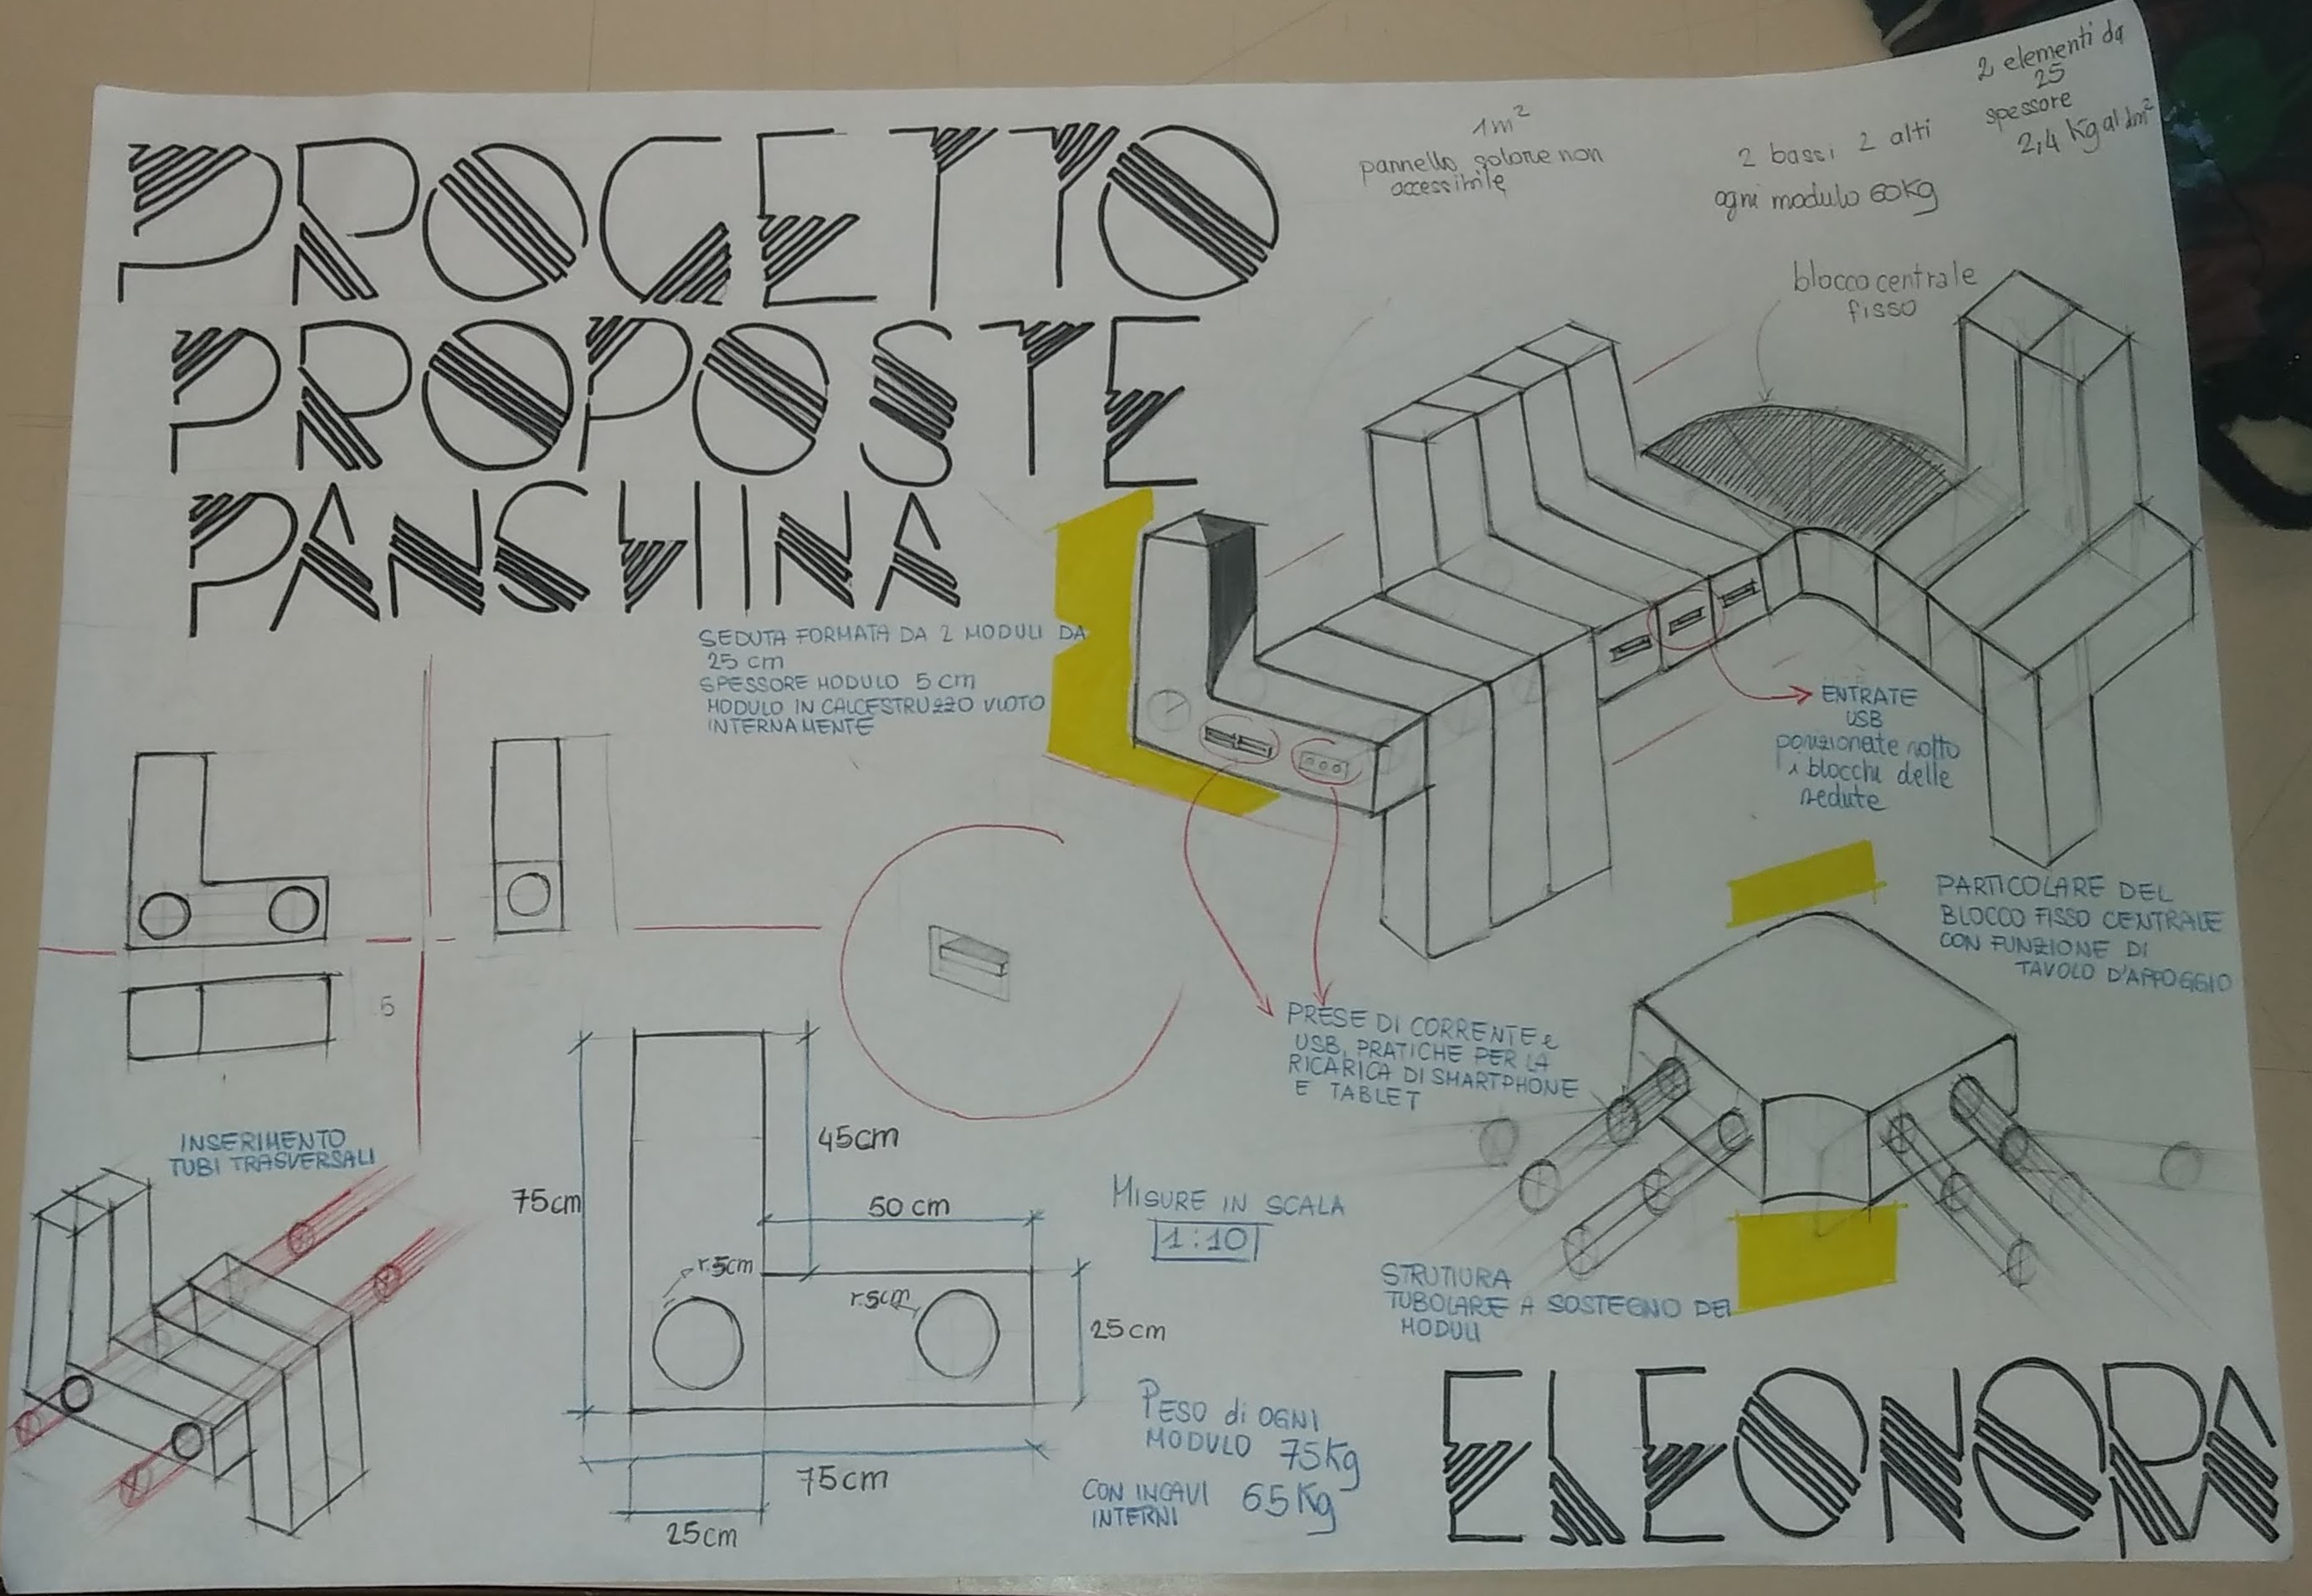 PROGETTO
PROPOSTE
PANCHINA
1m²
pannello solare non
accessibile
2 bassi 2 alti
ogni modulo 60Kg
2 elementi da
25
spessore
2,4 Kg al dm²
blocco centrale
fisso
SEDUTA FORMATA DA 2 MODULI DA
25 cm
SPESSORE MODULO 5 cm
MODULO IN CALCESTRUZZO VUOTO
INTERNAMENTE
ENTRATE
USB
posizionate sotto
i blocchi delle
sedute
PARTICOLARE DEL
BLOCCO FISSO CENTRALE
CON FUNZIONE DI
TAVOLO D'APPOGGIO
5
PRESE DI CORRENTE e
USB, PRATICHE PER LA
RICARICA DI SMARTPHONE
E TABLET
INSERIMENTO
TUBI TRASVERSALI
45cm
75cm
50 cm
r.5cm
r.5cm
25cm
75cm
25cm
MISURE IN SCALA
1:10
STRUTTURA
TUBOLARE A SOSTEGNO DEI
MODULI
PESO di OGNI
MODULO 75Kg
CON INCAVI 65Kg
INTERNI
ELEONORA